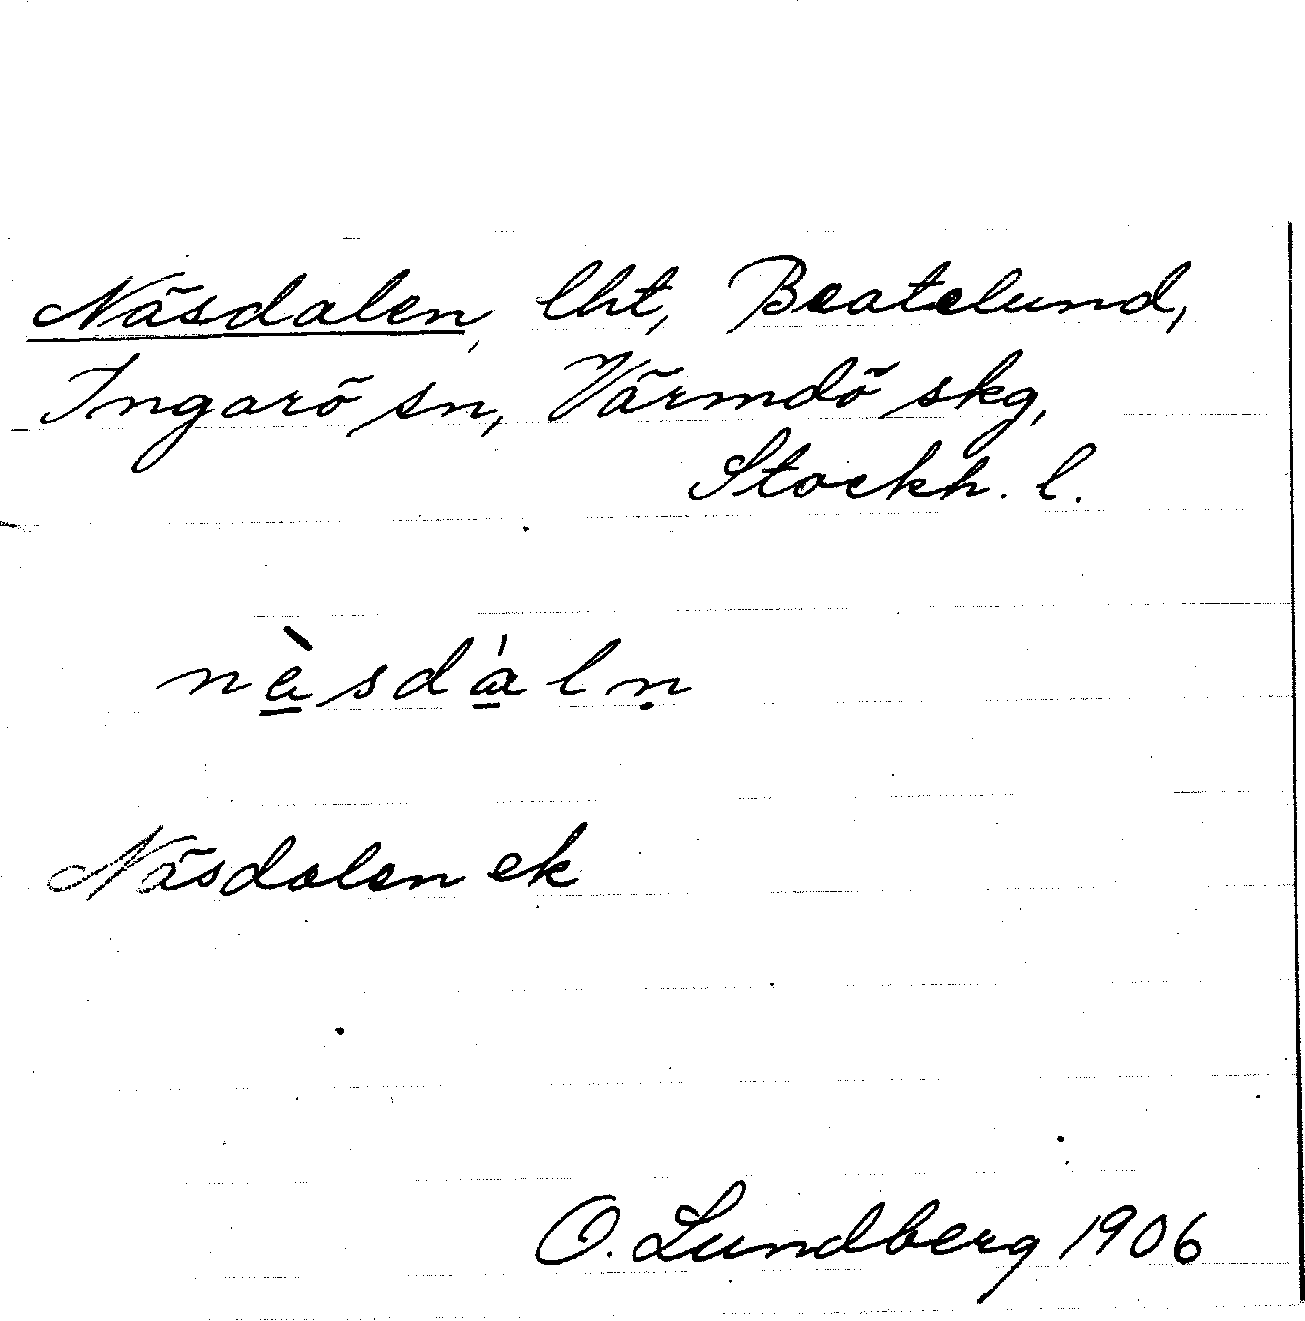 Näsdalen, lht, Beatelund,
Ingarö sn, Värmdö skg,
Stockh. l.
nä̀sdáḷṇ
Näsdalen ek
O. Lundberg 1906